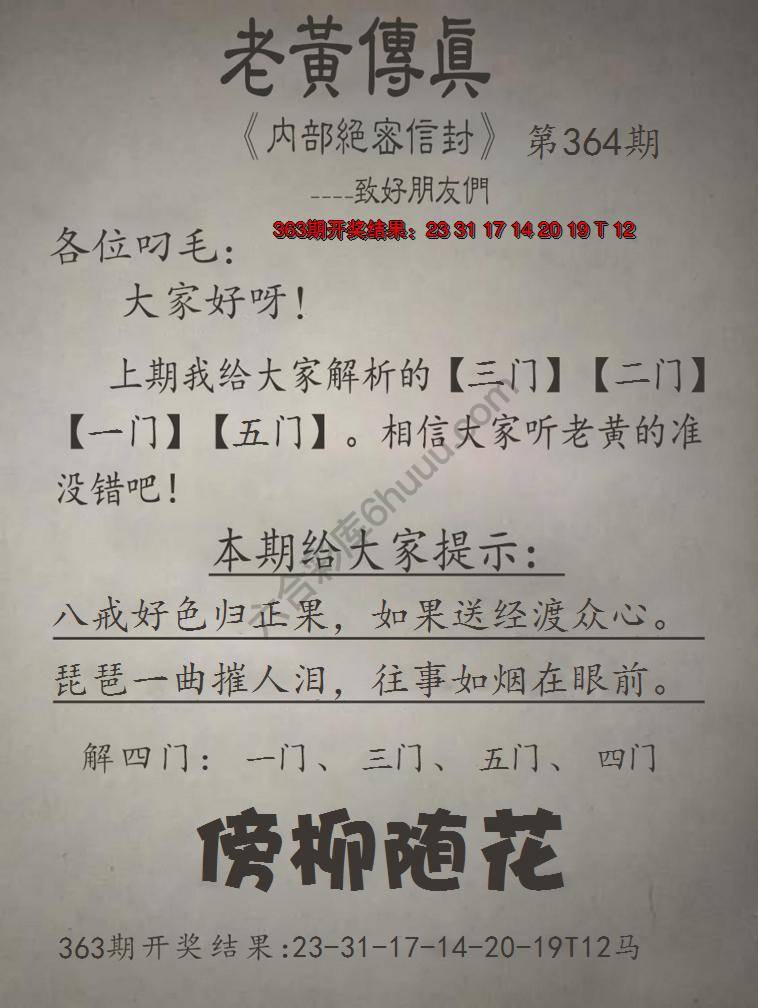 老黃傳真
《内部絕密信封》 第364期
----致好朋友們
363期开奖结果：23 31 17 14 20 19 T 12
各位叼毛：
大家好呀！
上期我给大家解析的【三门】【二门】
【一门】【五门】。相信大家听老黄的准
没错吧！
本期给大家提示：
八戒好色归正果，如果送经渡众心。
琵琶一曲摧人泪，往事如烟在眼前。
解四门：一门、三门、五门、四门
傍柳随花
363期开奖结果:23-31-17-14-20-19T12马
六合彩库6huuu.com